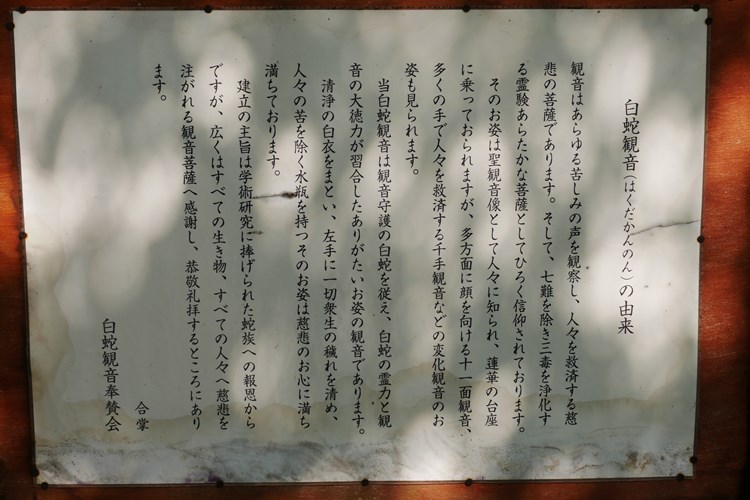 白蛇観音（はくだかんのん）の由来
観音はあらゆる苦しみの声を観察し、人々を救済する慈
悲の菩薩であります。そして、七難を除き三毒を浄化す
る霊験あらたかな菩薩としてひろく信仰されております。
そのお姿は聖観音像として人々に知られ、蓮華の台座
に乗っておられますが、多方面に顔を向ける十一面観音、
多くの手で人々を救済する千手観音などの変化観音のお
姿も見られます。
当白蛇観音は観音守護の白蛇を従え、白蛇の霊力と観
音の大徳力が習合したありがたいお姿の観音であります。
清浄の白衣をまとい、左手に一切衆生の穢れを清め、
人々の苦を除く水瓶を持つそのお姿は慈悲のお心に満ち
満ちております。
建立の主旨は学術研究に捧げられた蛇族への報恩から
ですが、広くはすべての生き物、すべての人々へ慈悲を
注がれる観音菩薩へ感謝し、恭敬礼拝するところにあり
ます。
合掌
白蛇観音奉賛会